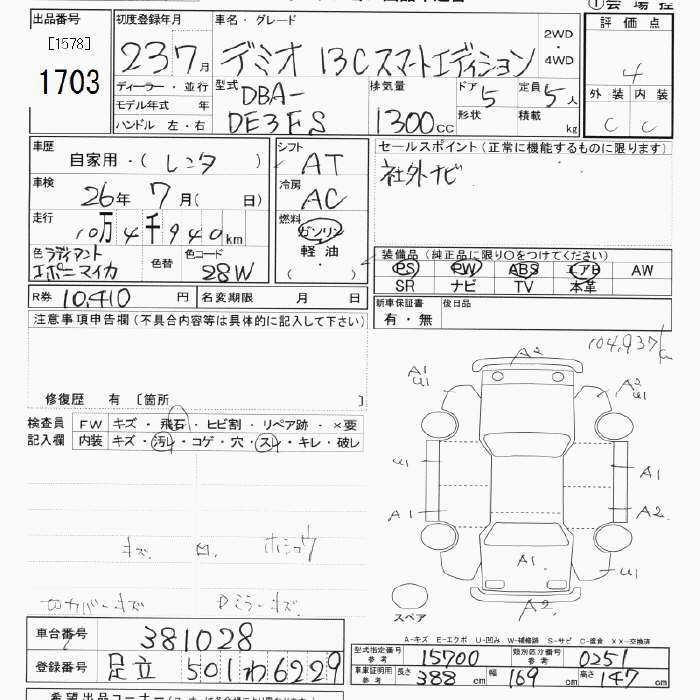 出品番号 初度登録年月 車名・グレード 2WD・4WD 評価点
[1578]
1703
23 7月 デミオ 13C スマートエディション 4
ディーラー・並行 型式 DBA- 排気量 ドア 5 定員 5人 外装 内装
モデル年式 年
ハンドル 左・右 DE3FS 1300cc 形状 積載 kg C C
車歴 自家用・(レンタ) シフト AT セールスポイント(正常に機能するものに限ります)
車検 26年 7月( 日) 冷房 AC 社外ナビ
走行 10万4千940km 燃料 ガソリン
軽油
( )
色 ラディアント 色替 色コード 装備品(純正品に限り〇をつけてください)
エボニーマイカ 28W PS PW ABS エアB AW
SR ナビ TV 本革
R券 10,410円 名変期限 月 日 新車保証書 後日品
有・無
注意事項申告欄(不具合内容等は具体的に記入して下さい)
104,937km
修復歴 有 [箇所 ]
検査員 FW キズ・飛石・ヒビ割・リペア跡・×要
記入欄 内装 キズ・汚レ・コゲ・穴・スレ・キレ・破レ
A2
A1
U1
A2
U1
U1 A1
A1 A2
A1 U1
A2
スペア
キズ 凹
カバーキズ Dミラーキズ
A-キズ E-エクボ U-凹み W-補修跡 S-サビ C-腐食 XX-交換済
車台番号 381028
登録番号 足立 501 わ 6229
型式指定番号 参考 15700 類別区分番号 参考 0251
車車証明用 参考 長さ 388cm 幅 169cm 高さ 147cm
希望出品コーナー